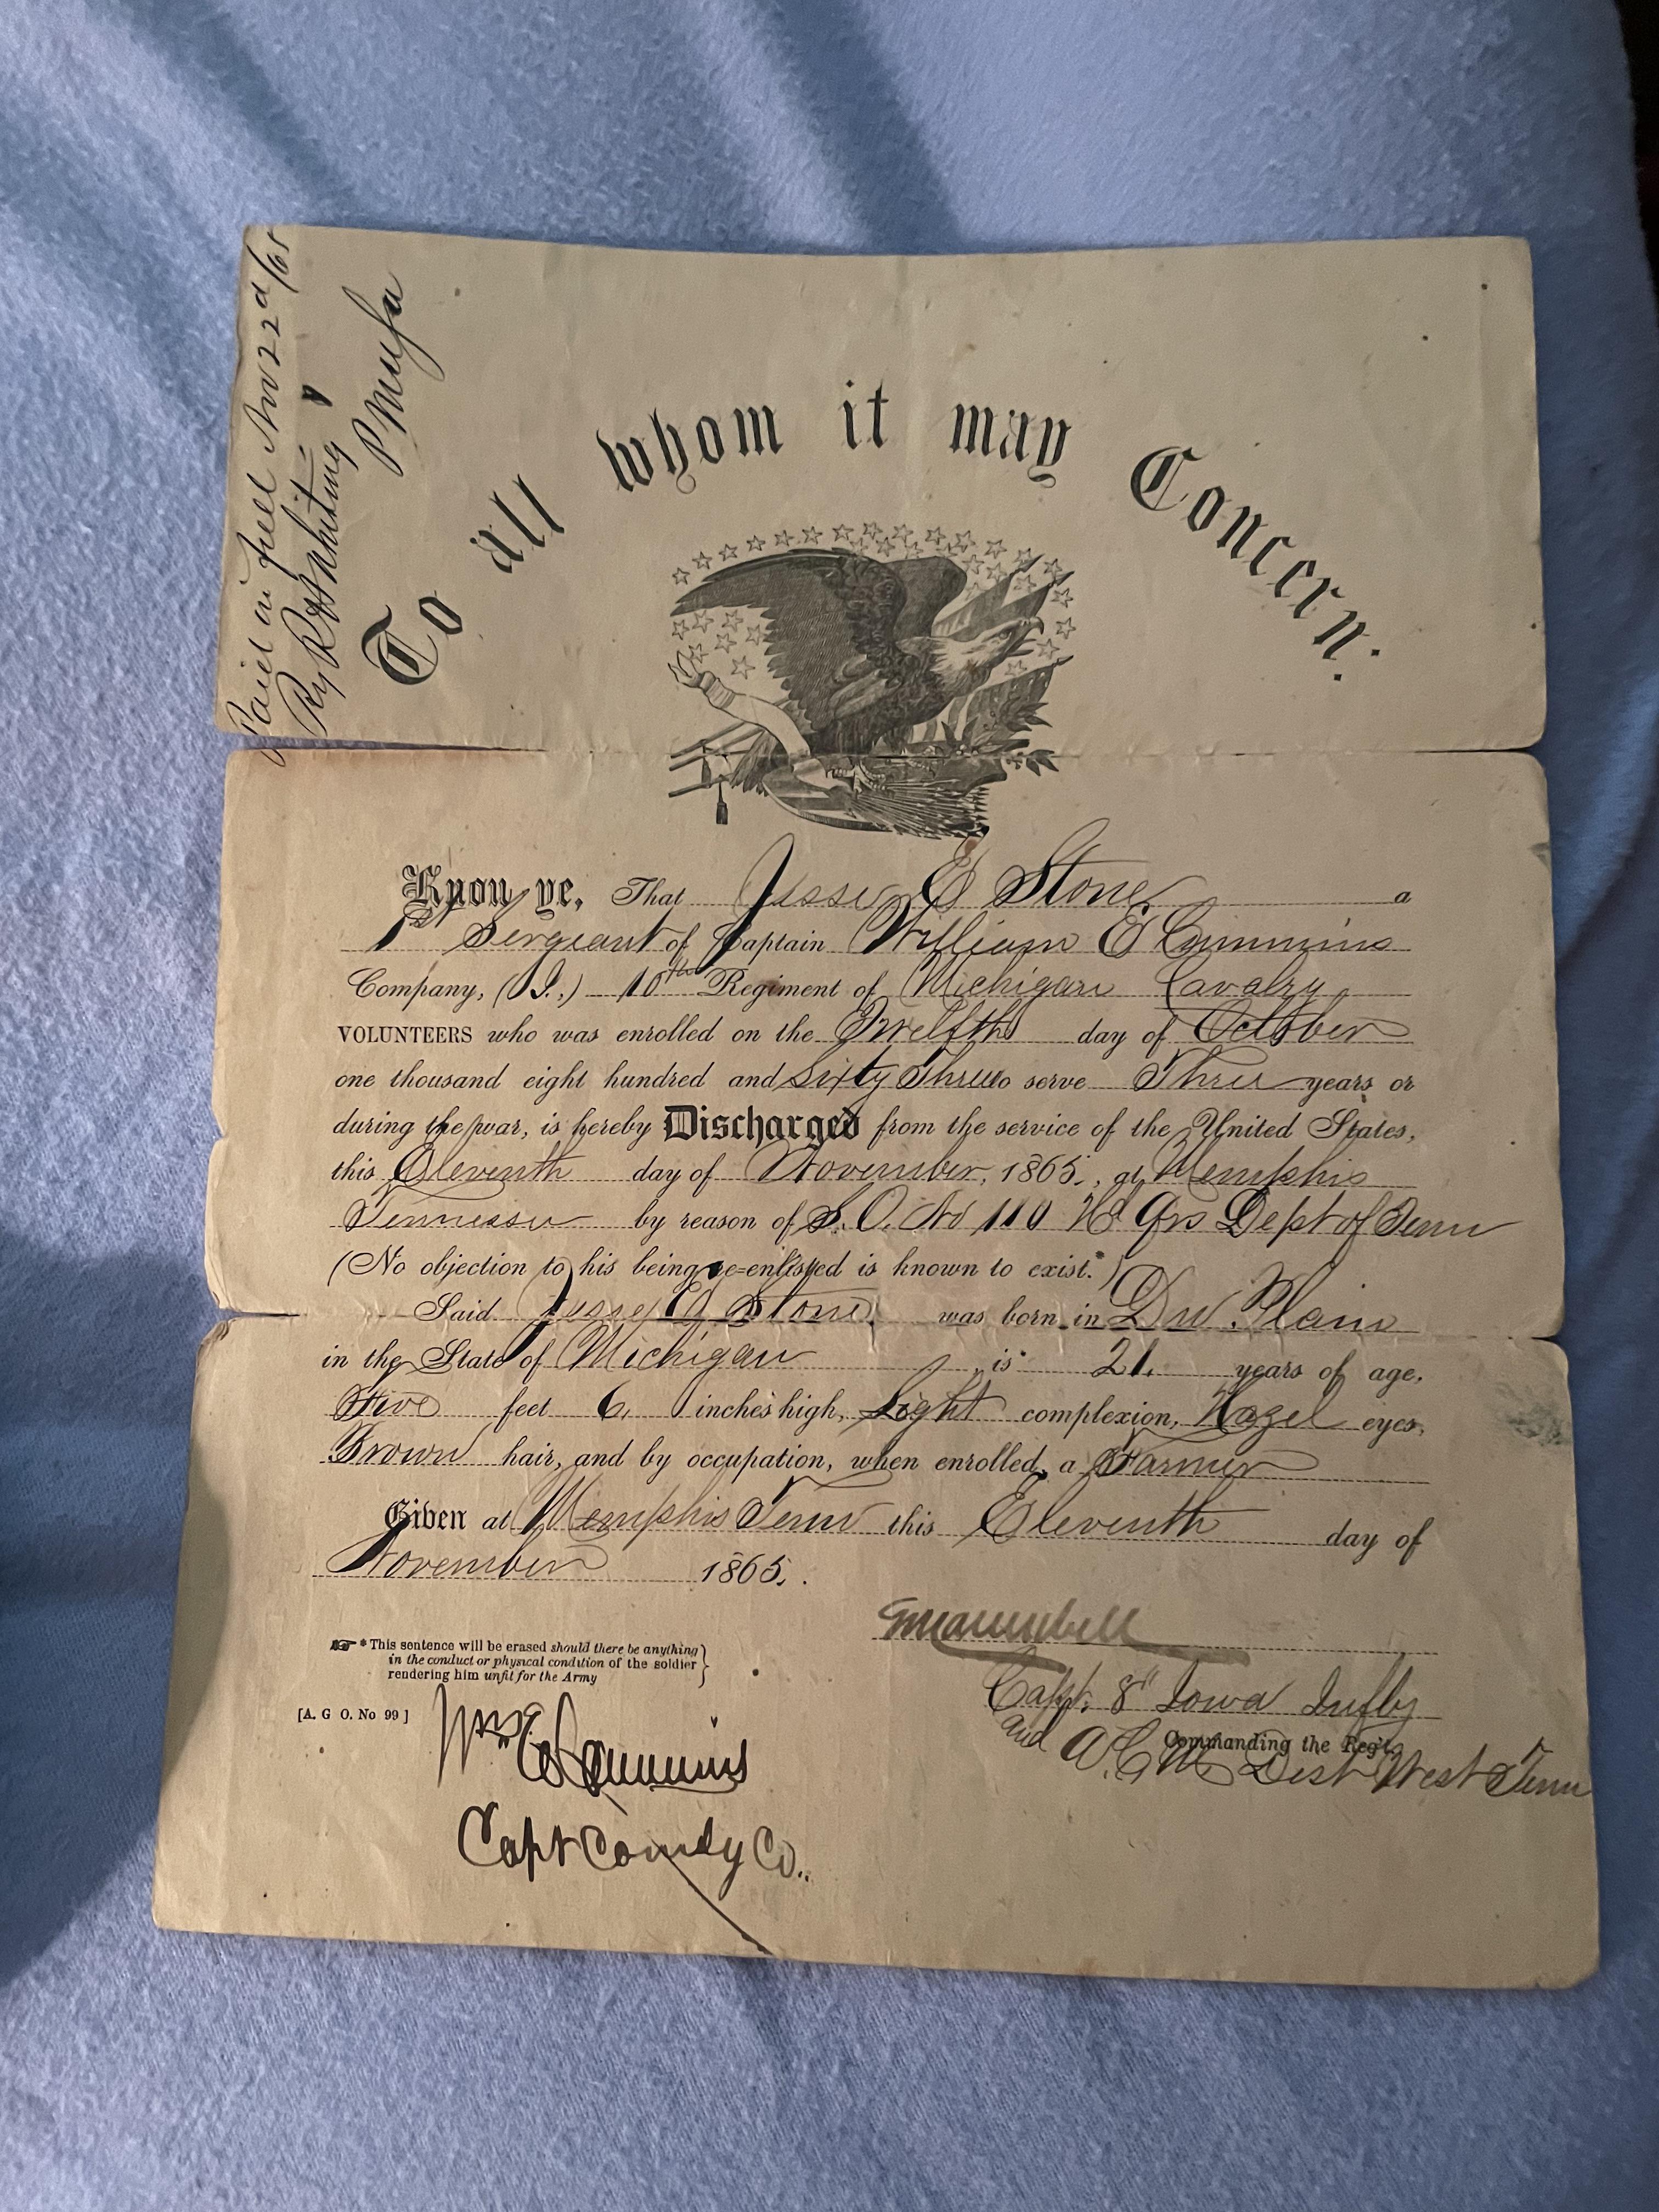 Paid in full Nov 22d/65
To all whom it may Concern.
Know ye, That Jesse E Stone a
1st Sergeant of Captain William E Cummins
Company, (I.) 10th Regiment of Michigan Cavalry
VOLUNTEERS who was enrolled on the Twelfth day of October
one thousand eight hundred and Sixty Three to serve Three years or
during the war, is hereby Discharged from the service of the United States,
this Eleventh day of November, 1865, at Memphis
Tennessee by reason of S. O. No 110 Hd Qrs Dept of Tenn
(No objection to his being re-enlisted is known to exist.*)
Said Jesse E Stone was born in Plain
in the State of Michigan is 21 years of age,
Five feet 6 inches high, Light complexion, Hazel eyes,
Brown hair, and by occupation, when enrolled, a Farmer
Given at Memphis Tenn this Eleventh day of
November 1865.
*This sentence will be erased should there be anything
in the conduct or physical condition of the soldier
rendering him unfit for the Army
[A. G O. No 99]
Wm E Cummins
Capt Comdg Co.
Capt. 8" Iowa Infty
Commanding the Reg't
and A.C.M. Dist West Tenn